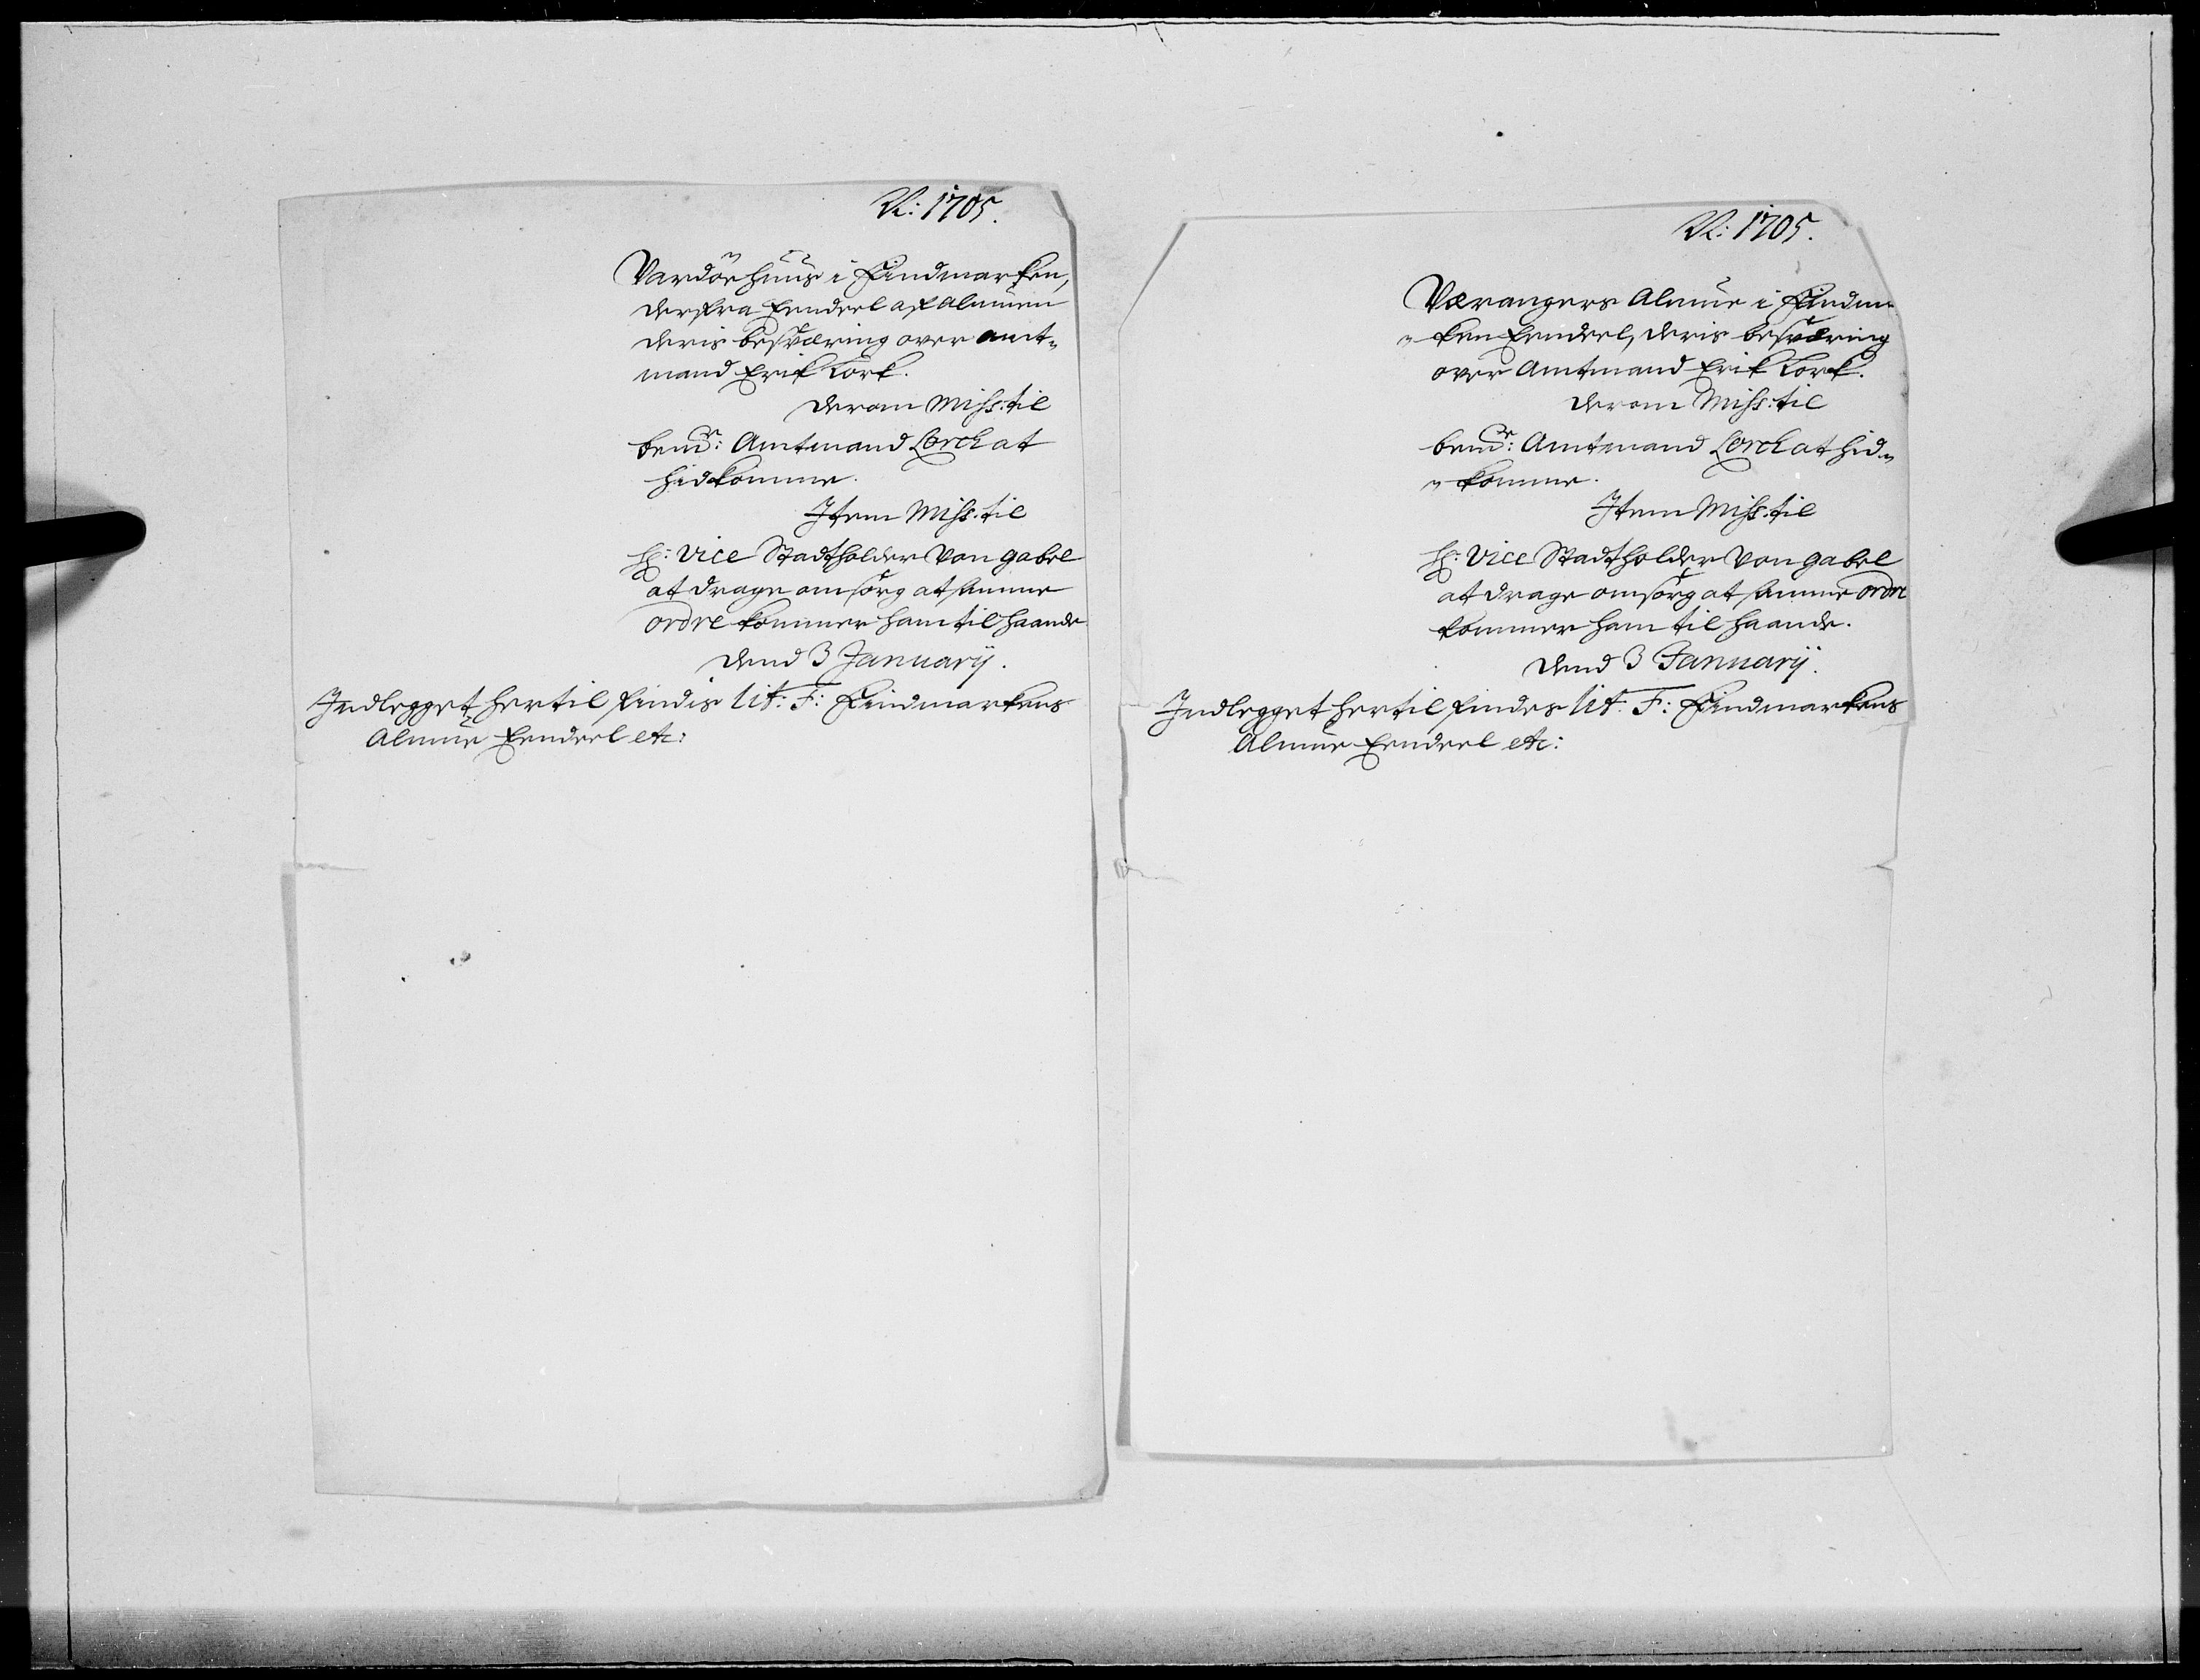 N: 1705.
Vardöehuus i Findmarken,
derfra Eendeel af Almuen
deris besværing over Amt-
mand Erik Lork.
derom Miss: til
bemte: Amtmand Lorch at
hidkomme.
Item Miss: til
Hr: Vice Stadtholder Von Gabel
at drage omsorg at samme
ordre kommer ham til haande
dend 3 Januarij.
Indlegget hertil findis Lit: F: Findmarkens
Almue Eendeel etc:
N: 1705.
Værangers Almue i Findm
-ken Eendeel, deris besværing
over Amtmand Erik Lork.
derom Miss: til
bemte: Amtmand Lorch at hid-
-komme.
Item Miss: til
Hr: Vice Stadtholder Von Gabel
at drage omsorg at samme ordre
kommer ham til haande.
dend 3 Januarij.
Indlegget hertil findes Lit: F: Findmarkens
Almue Eendeel etc: